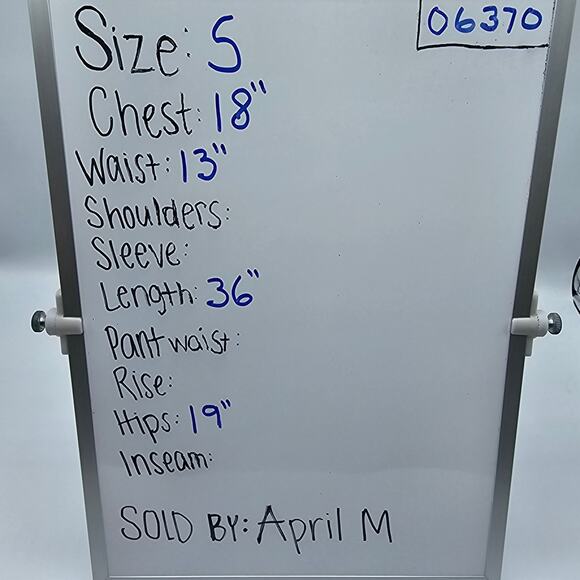 06370
Size: S
Chest: 18"
Waist: 13"
Shoulders:
Sleeve:
Length: 36"
Pant waist:
Rise:
Hips: 19"
Inseam:
SOLD BY: April M